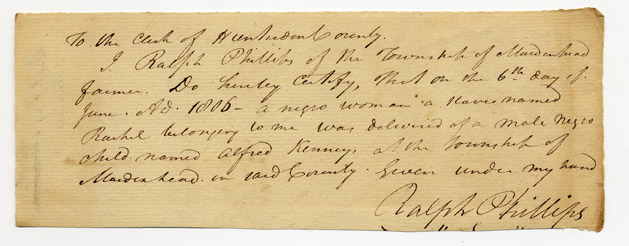 To the Clerk of Hunterdon County.
I. Ralph Phillips of the Township of Maidenhead
farmer. Do hereby Certify, that on the 6th day of
June. AD. 1806 - a negro woman a slave named
Rachel belonging to me was delivered of a male Negro
child named Alfred Kenney, at the Township of
Maidenhead in said County. Given under my hand
Ralph Phillips